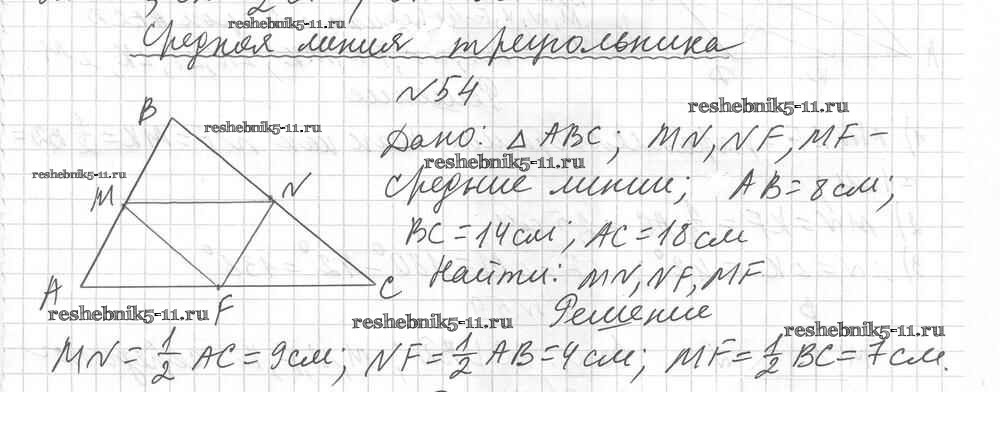 reshebnik5-11.ru
Средняя линия треугольника
№54
reshebnik5-11.ru
B
reshebnik5-11.ru
Дано: △ ABC; MN, NF, MF –
reshebnik5-11.ru
reshebnik5-11.ru
M
N
средние линии; AB = 8 см;
BC = 14 см; AC = 18 см
A
F
C
Найти: MN, NF, MF
reshebnik5-11.ru
reshebnik5-11.ru
Решение
reshebnik5-11.ru
MN = 1/2 AC = 9 см; NF = 1/2 AB = 4 см; MF = 1/2 BC = 7 см.